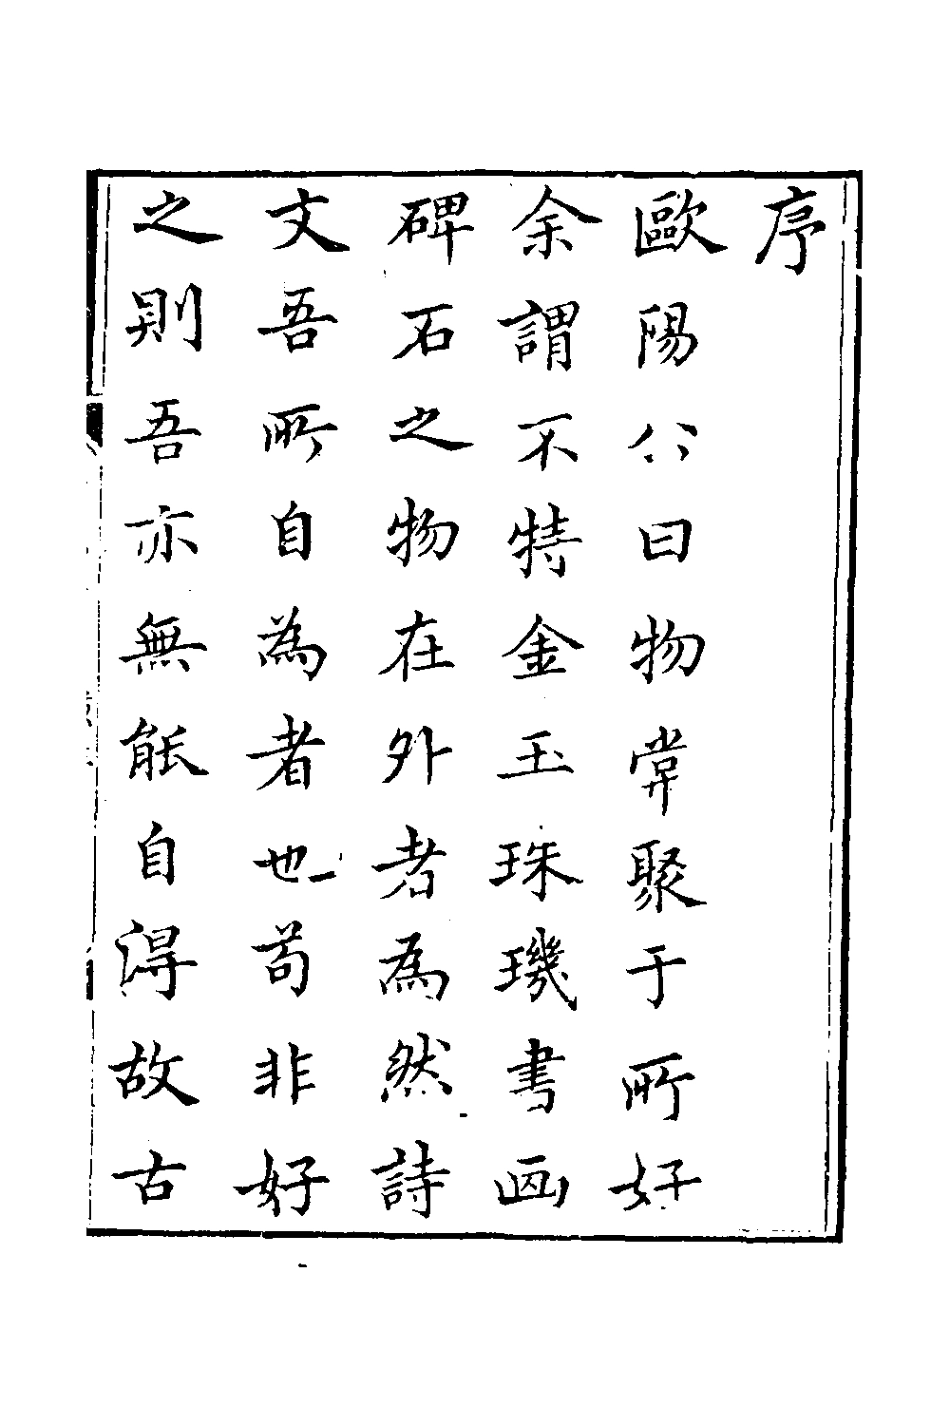 序
歐陽公曰物常聚于所好
余謂不特金玉珠璣書画
碑石之物在外者為然詩
文吾所自為者也苟非好
之則吾亦無能自得故古